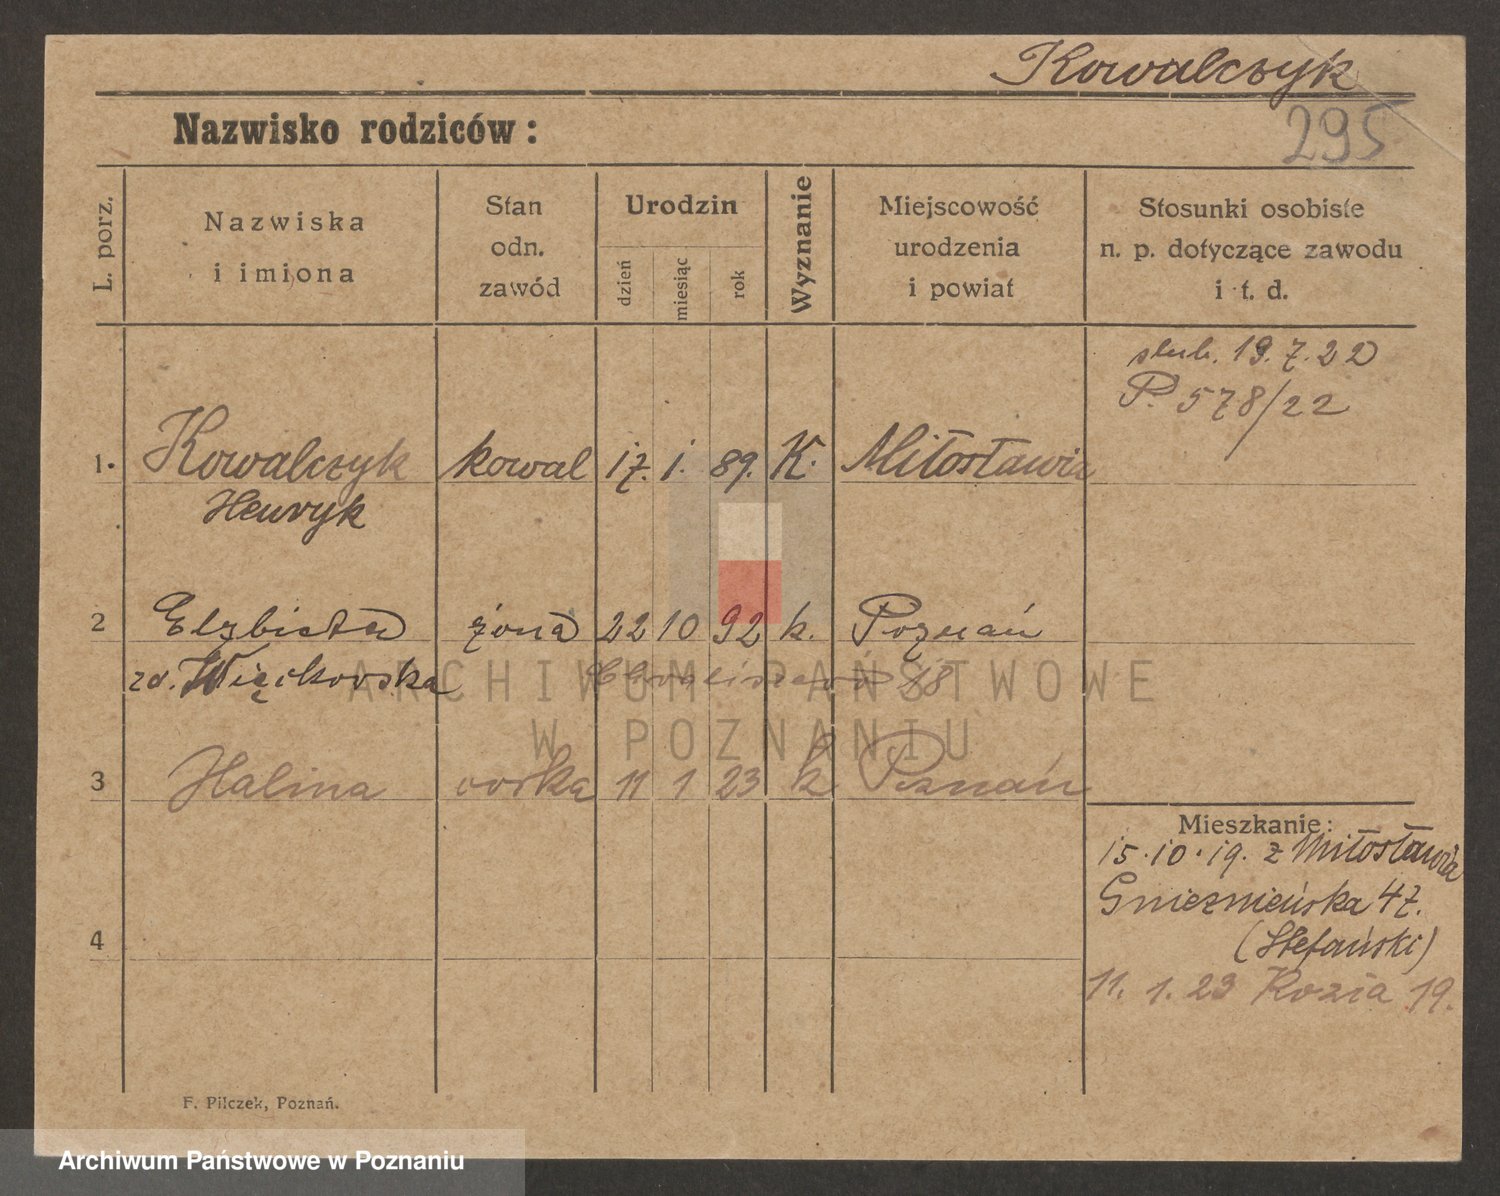 Kowalczyk
295
Nazwisko rodziców:
L. porz.
Nazwiska
i imiona
Stan
odn.
zawód
Urodzin
dzień
miesiąc
rok
Wyznanie
Miejscowość
urodzenia
i powiat
Stosunki osobiste
n. p. dotyczące zawodu
i t. d.
ślub. 19.7.22
P. 578/22
1. Kowalczyk kowal 17. 1. 89. K. Miłosławia
Henryk
2 Elzbieta żona 22 10 92 k. Poznań
zd. Więckowska 18
3 Halina corka 11 1 23 k Poznań
Mieszkanie:
15.10.19. z Miłosławia
Gnieznieńska 47.
(Stefański)
4
11. 1. 23 Kozia 19.
F. Pilczek, Poznań.
ARCHIWUM PAŃSTWOWE
W POZNANIU
Archiwum Państwowe w Poznaniu